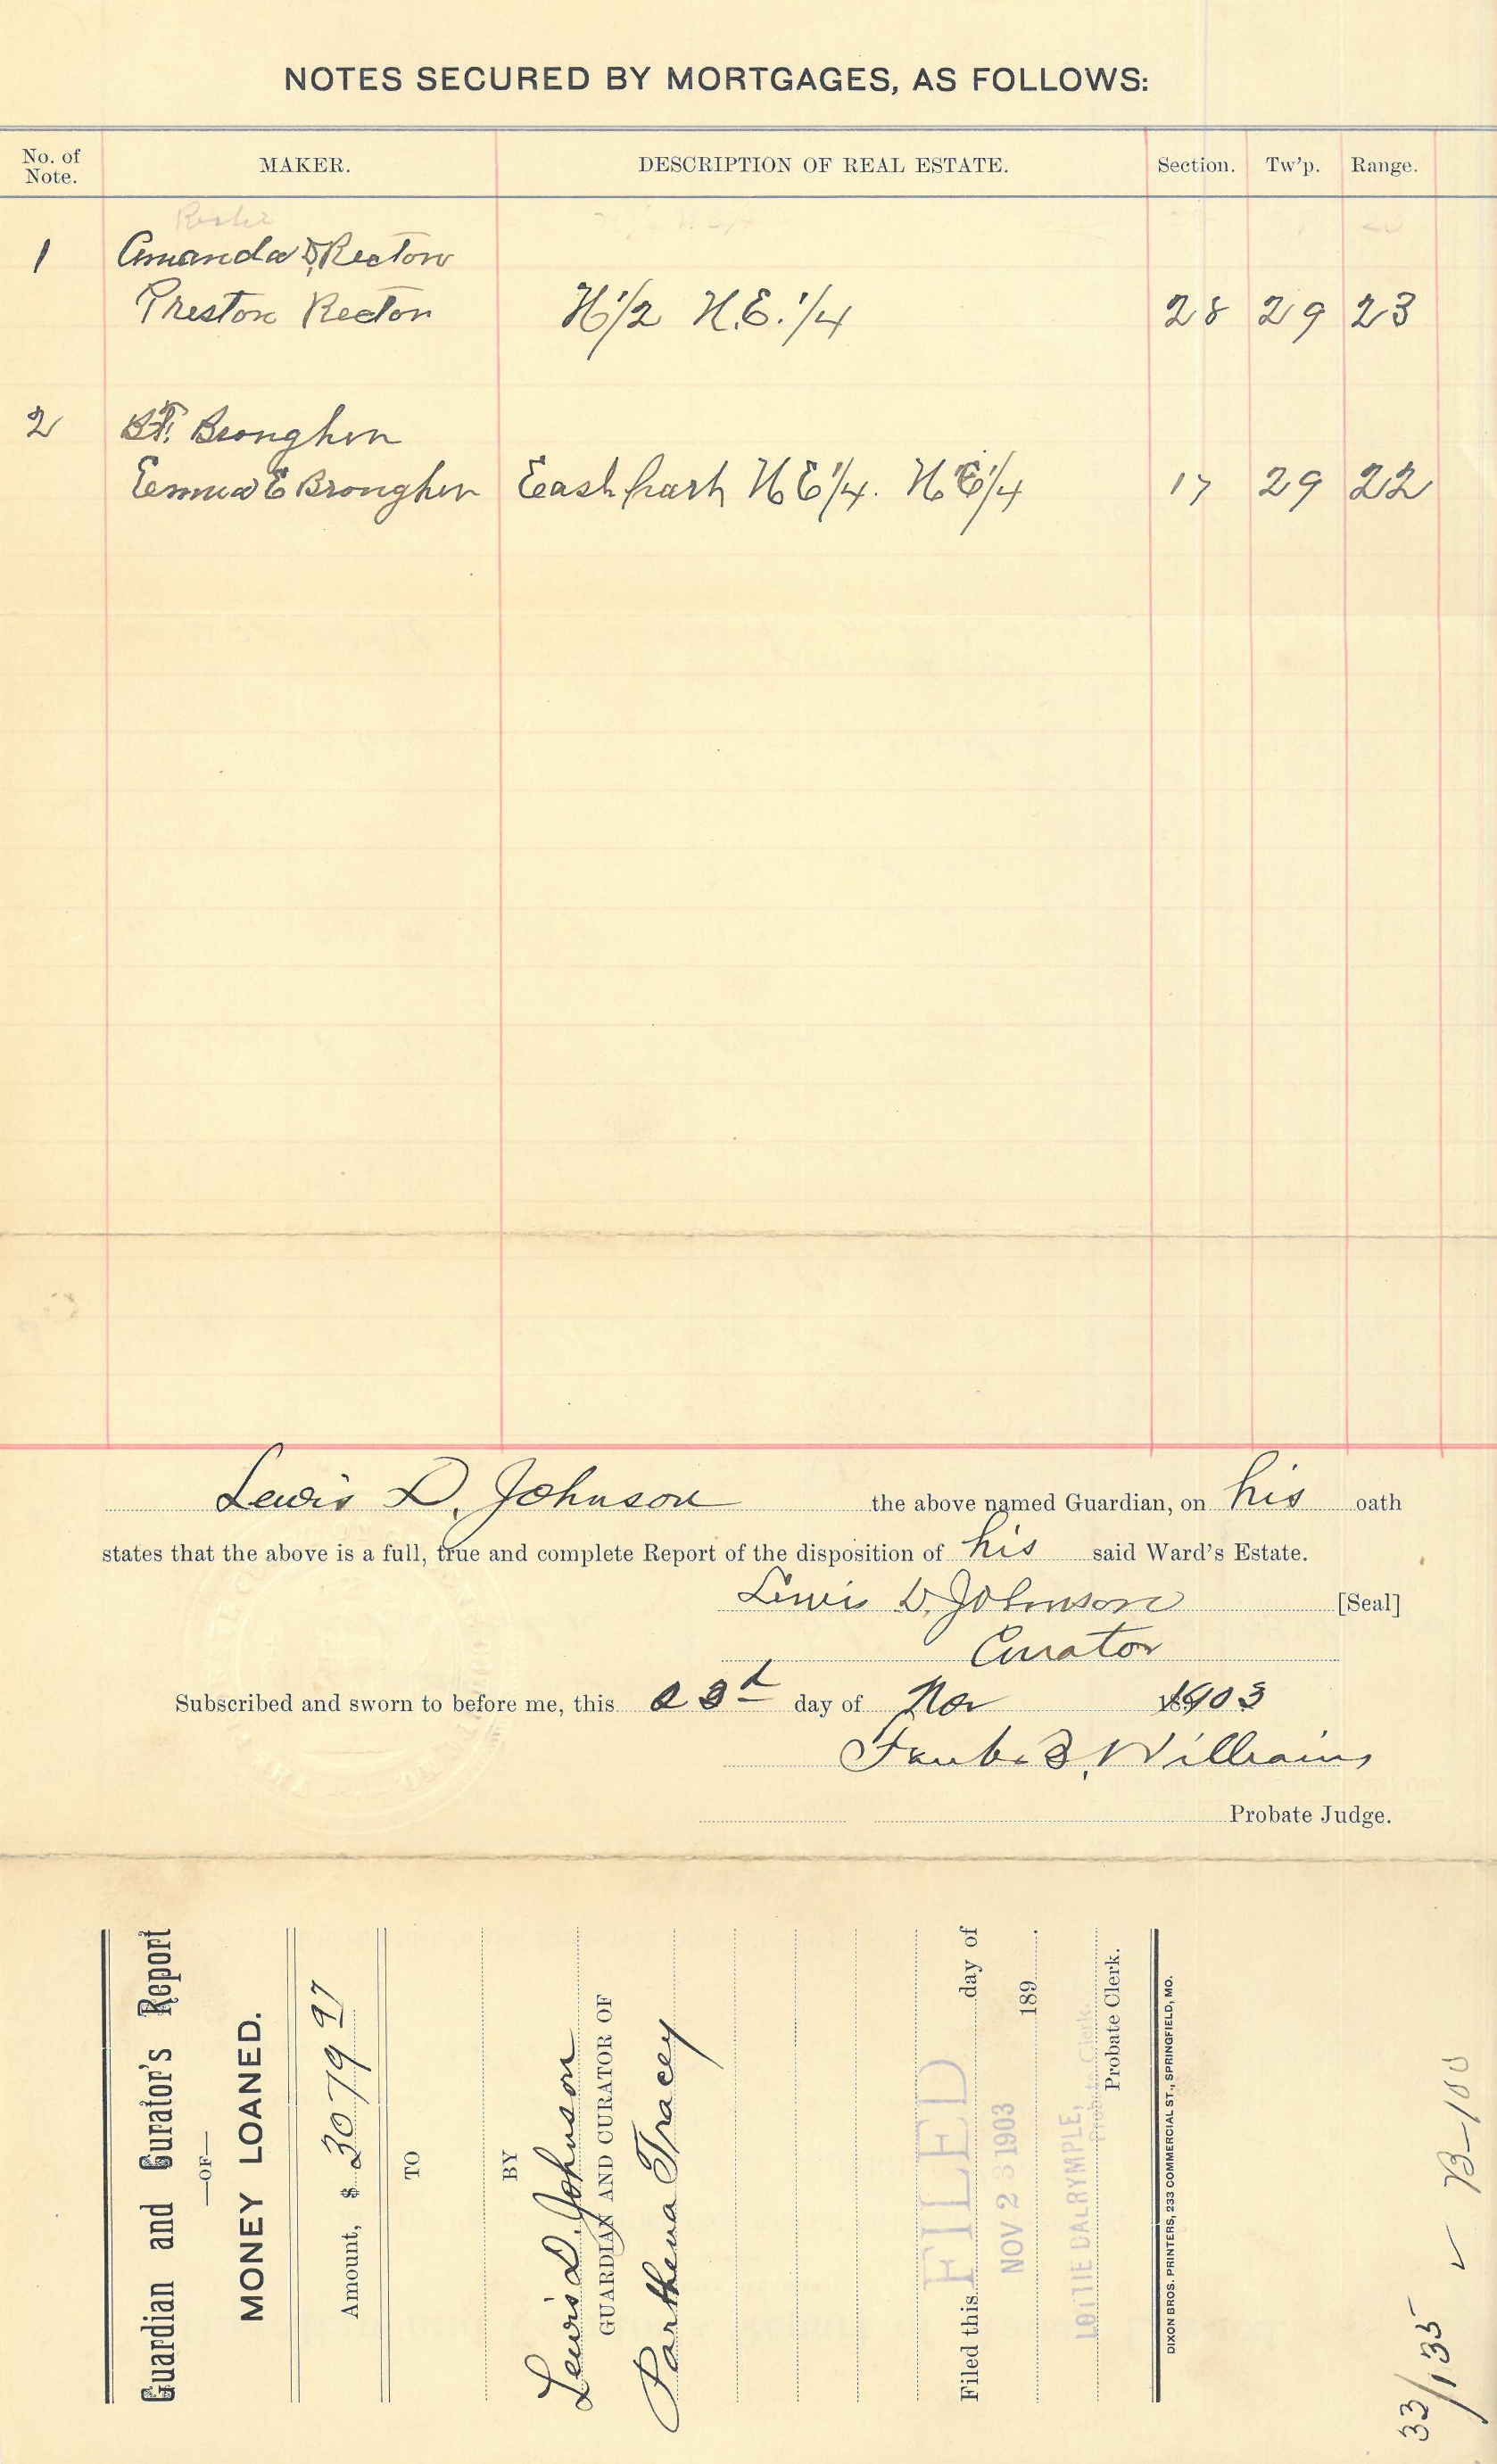 NOTES SECURED BY MORTGAGES, AS FOLLOWS:
No. of Note. MAKER. DESCRIPTION OF REAL ESTATE. Section. Tw'p. Range.
1 Amanda Rector
Preston Rector N 1/2 N.E. 1/4 28 29 23
2 B.F. Broughen
Emma E Broughen East part N E 1/4. N E 1/4 17 29 22
Lewis D. Johnson the above named Guardian, on his oath
states that the above is a full, true and complete Report of the disposition of his said Ward's Estate.
Lewis D. Johnson [Seal]
Curator
Subscribed and sworn to before me, this 23d day of Nov 1903
Williams
Probate Judge.
Guardian and Curator's Report
—OF—
MONEY LOANED.
Amount, $ 3079 97
TO
BY
Lewis D. Johnson
GUARDIAN AND CURATOR OF
Parthena Tracey
FILED
Filed this day of
NOV 23 1903
189
LOTTIE DALRYMPLE,
Probate Clerk
Probate Clerk.
DIXON BROS. PRINTERS, 233 COMMERCIAL ST., SPRINGFIELD, MO.
33/135
B-100